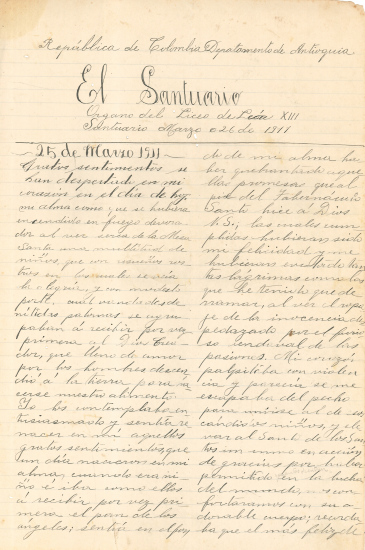 República de Colombia Departamento de Antioquia
El Santuario
Organo del Liceo de León XIII
Santuario Marzo 26 de 1911
25 de Marzo 1911
Gratos sentimientos se
han despertado en mi
corazón en el día de hoy,
mi alma como que se hubiera
incendiado en fuego devora-
dor al ver cerca de la Mesa
Santa una multitud de
niños que con risueños ros-
tros en los cuales se veía
la alegría, y con modesto
porte, cual bandadas de
nítidas palomas se agru-
paban á recibir por vez
primera al Dios
que lleno de amor
por los hombres descen-
dió á la tierra para ha-
cerse nuestro alimento.
Yo los contemplaba en-
tusiasmado y sentía re-
nacer en mí aquellos
gratos sentimientos, que
un día nacieron en mi
alma, cuando era ni-
ño é iba como ellos
á recibir por vez pri-
mera el pan de los
ángeles; sentía en el fon-
do de mi alma ha-
ber quebrantado aque-
llas promesas que al
pie del Tabernáculo
Santo hice á Dios
N.S., las cuales cum-
plidas hubieran sido
mi felicidad y me
hubieran evitado tan-
tas lágrimas
que he tenido que de-
rramar, al ver el ropa-
je de la inocencia des-
pedazado por el
vendaval de las
pasiones. Mi corazón
palpitaba con violen-
cia y parecía se me
escapaba del pecho
para unirse al de
niños, y ele-
var al Santo de los San-
tos un himno en acción
de gracias por haber
permitido en la lucha
del mundo,
con su a-
dorable cuerpo; recorda-
ba que el más feliz de